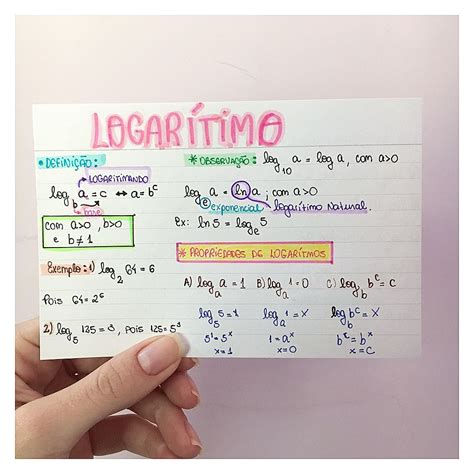 LOGARÍTIMO
• DEFINIÇÃO:
LOGARITIMANDO
log_b a = c ⇔ a = b^c
base
com a>0, b>0
e b≠1
Exemplo: 1) log_2 64 = 6
Pois 64 = 2^6
2) log_5 125 = 3, pois 125 = 5^3
* OBSERVAÇÃO: log_10 a = log a, com a>0
log_e a = ln a ; com a>0
exponencial logarítimo natural.
Ex: ln 5 = log_e 5
* PROPRIEDADES DE LOGARÍTMOS
A) log_a a = 1 B) log_a 1 = 0 C) log_b b^c = c
log_5 5 = x log_a 1 = x log_b b^c = x
5^1 = 5^x 1 = a^x b^c = b^x
x = 1 x = 0 x = c